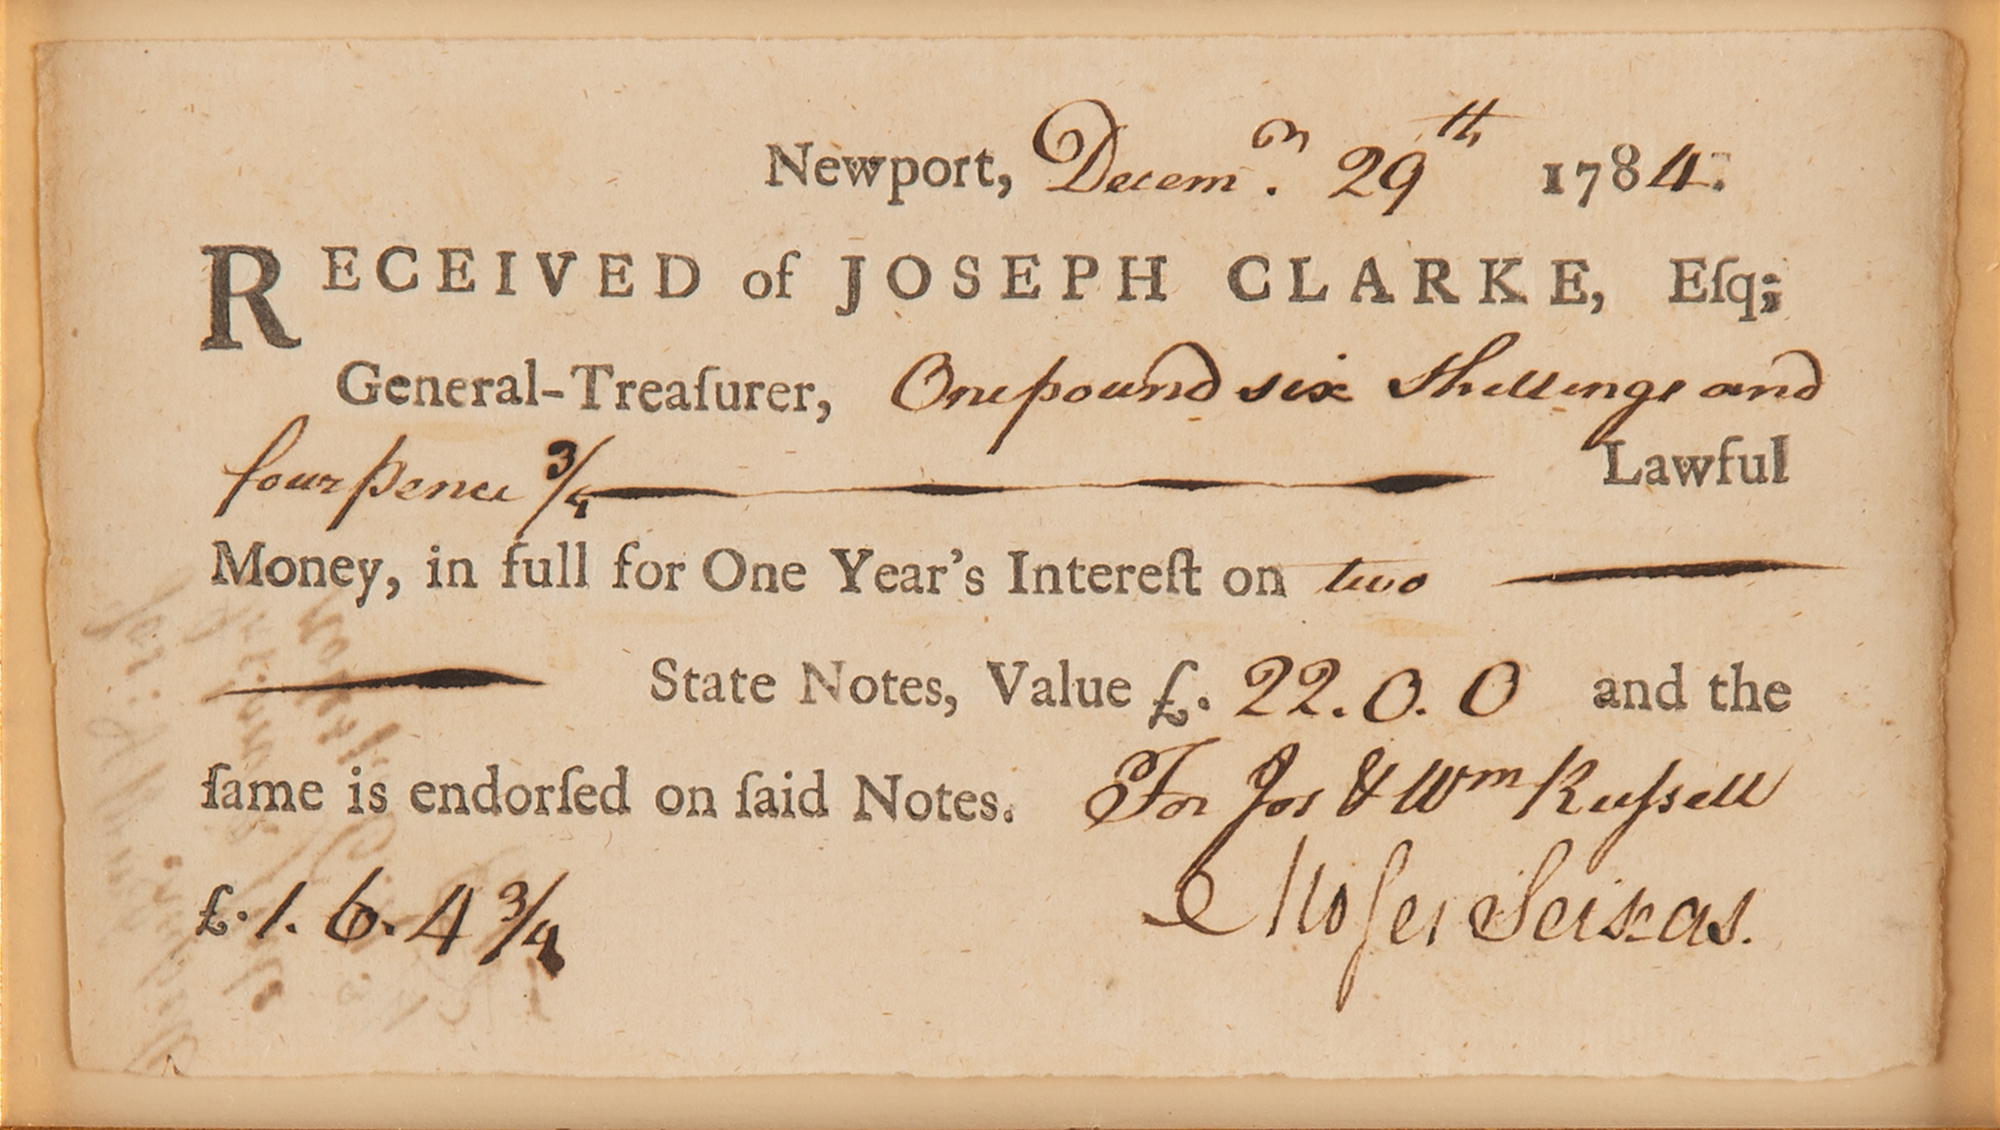 Newport, Decem.r 29th 1784:
RECEIVED of JOSEPH CLARKE, Eſq;
General-Treaſurer, One pound six Shillings and
four pence 3/4 Lawful
Money, in full for One Year's Intereſt on two
State Notes, Value £. 22. 0. 0 and the
ſame is endorſed on ſaid Notes. For Jos & Wm Ruſsell
£. 1. 6. 4 3/4 Moſes Seixas.